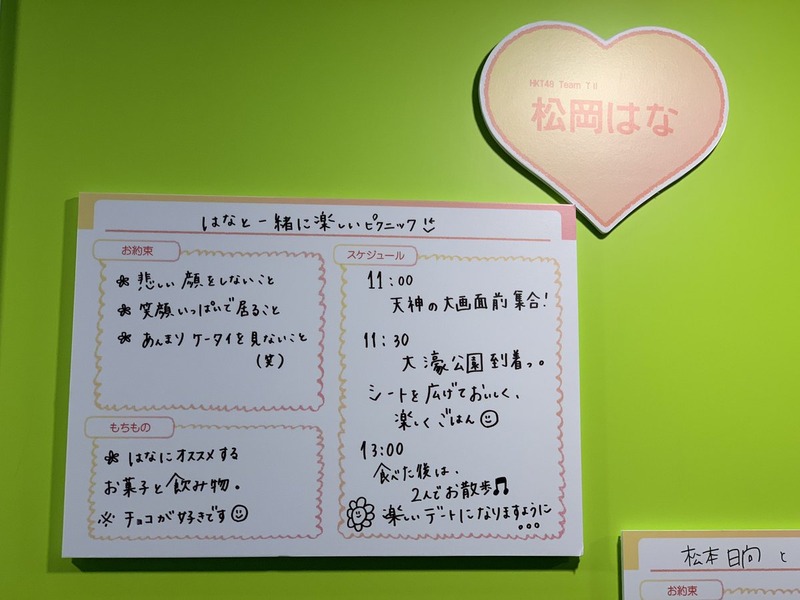 HKT48 Team TⅡ
松岡はな
はなと一緒に楽しいピクニック
お約束
悲しい顔をしないこと
笑顔いっぱいで居ること
あんまりケータイを見ないこと
(笑)
もちもの
はなにオススメする
お菓子と飲み物。
※ チョコが好きです
スケジュール
11:00
天神の大画面前集合!
11:30
大濠公園到着っ。
シートを広げておいしく、
楽しくごはん
13:00
食べた後は、
2人でお散歩♫
楽しいデートになりますように
...
松本日向と
お約束